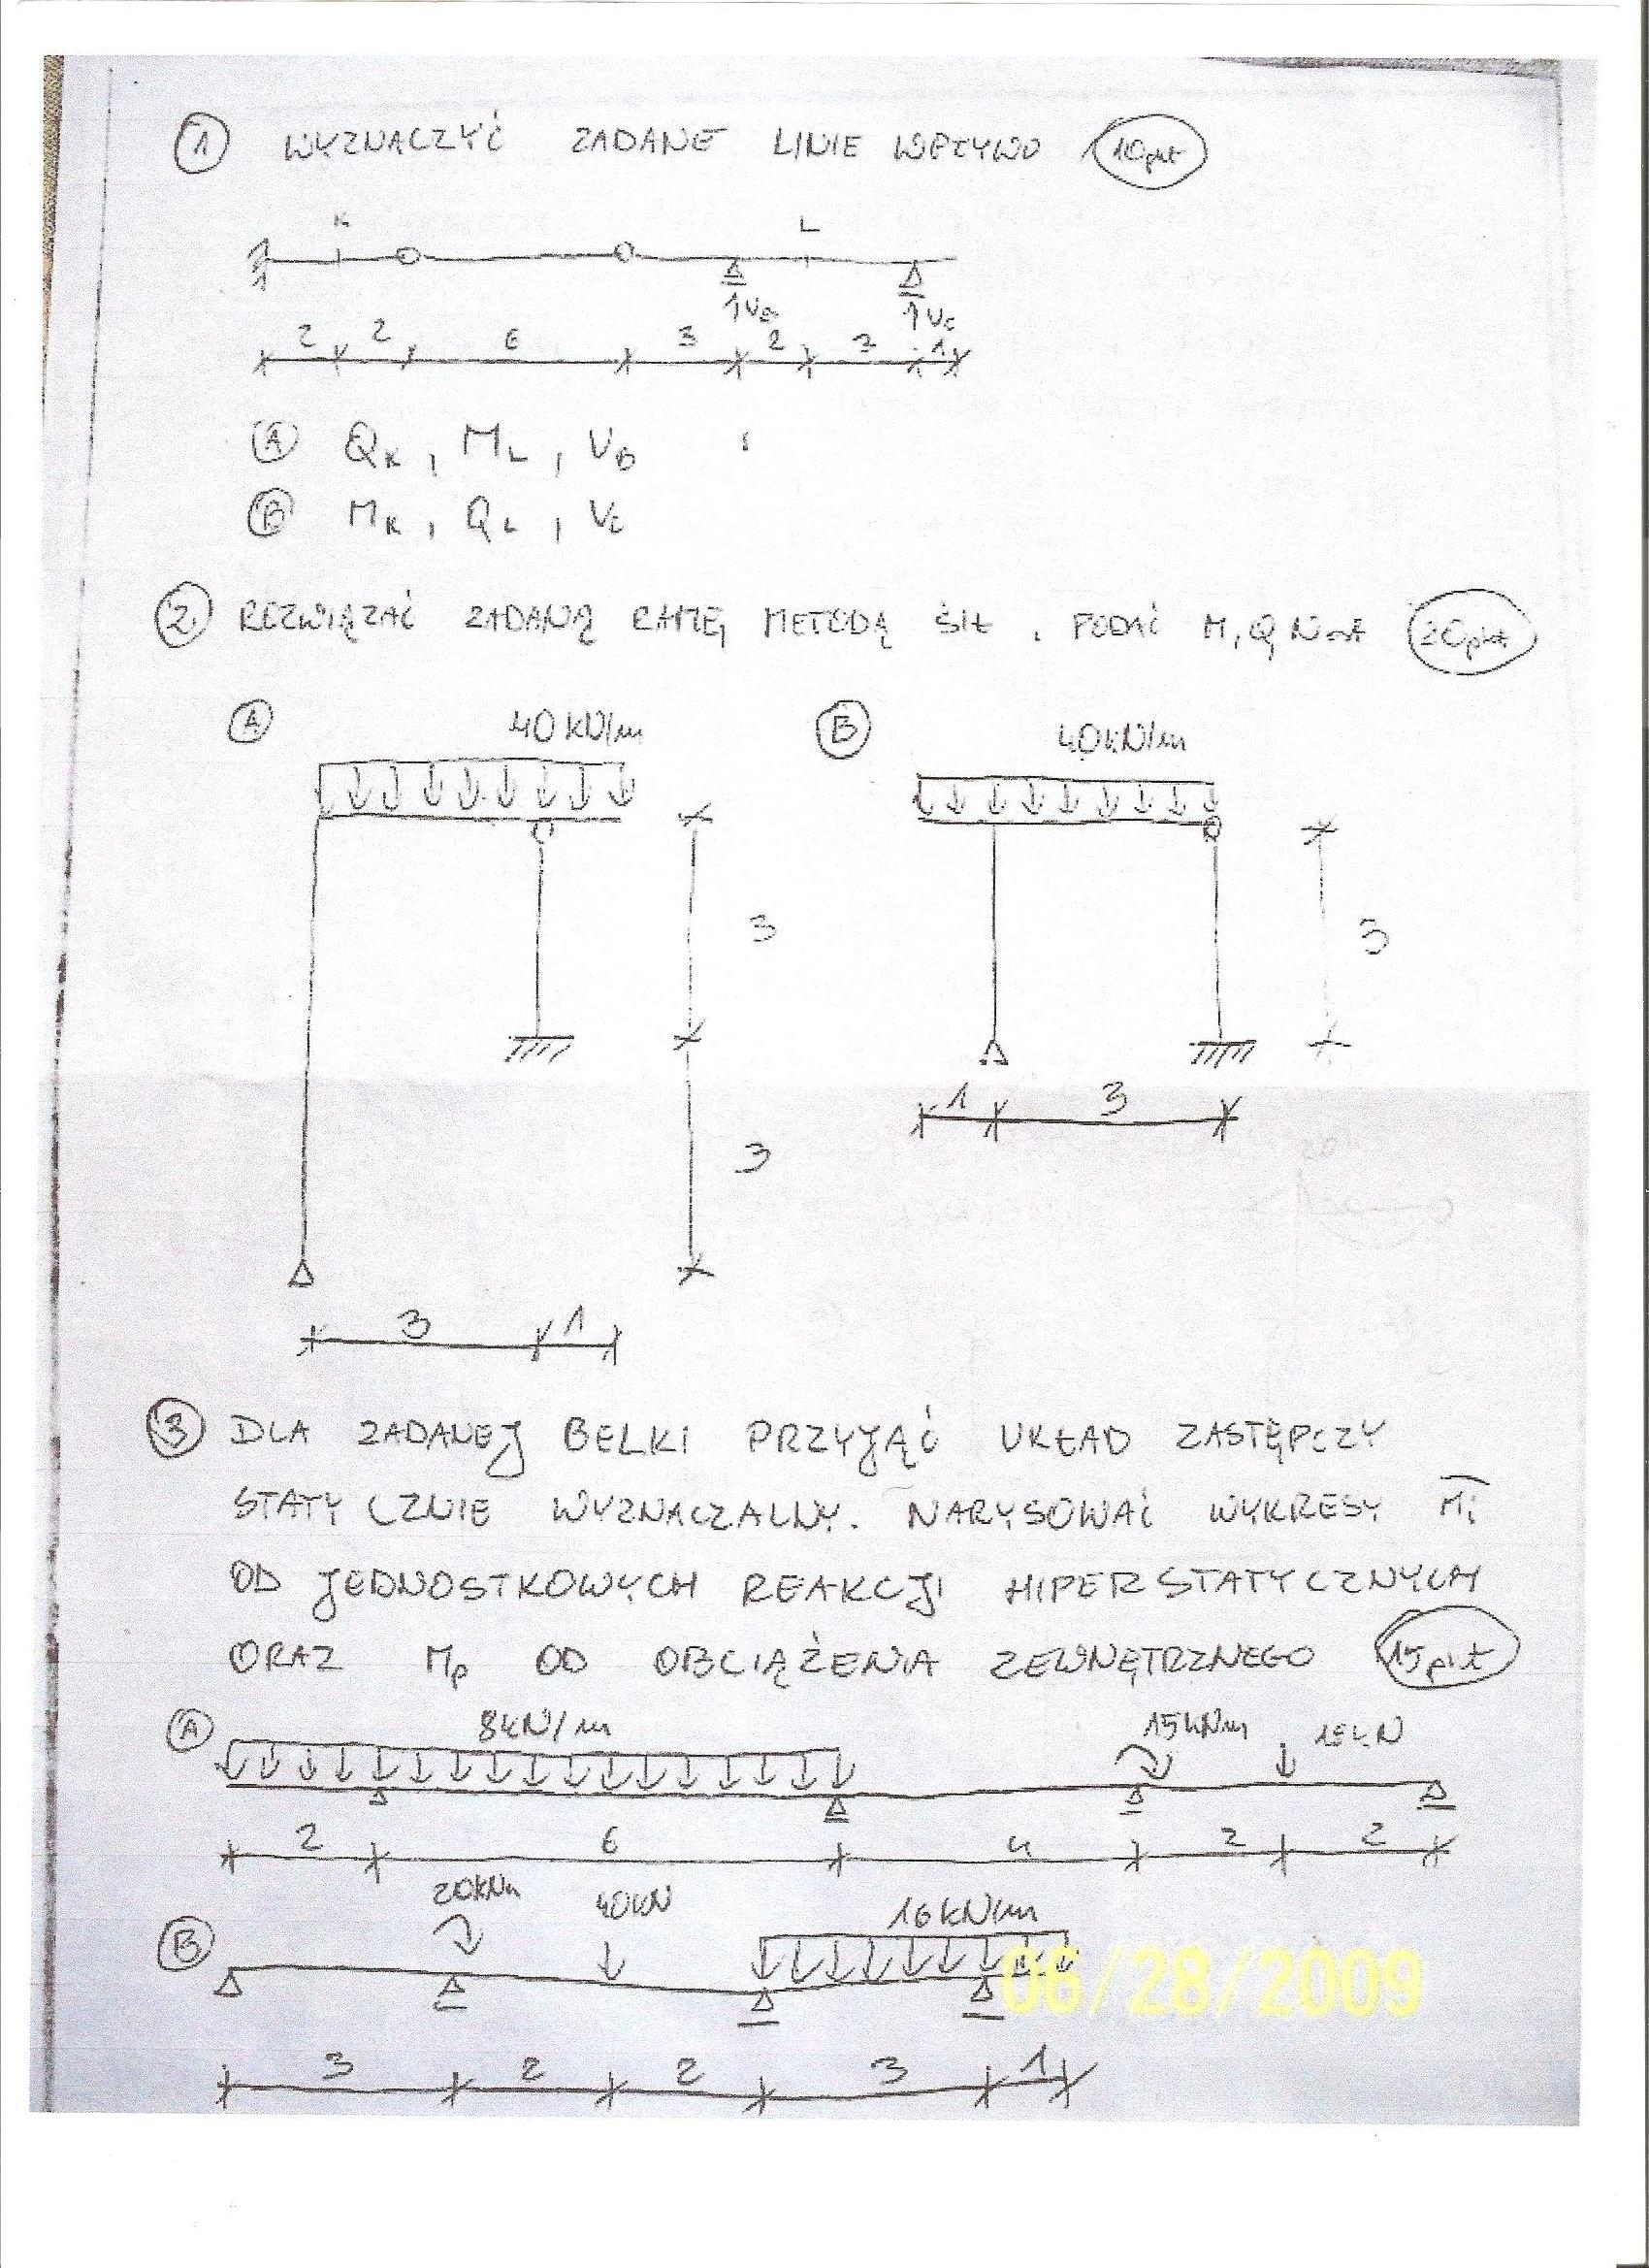 1 WYZNACZYĆ ZADANE LINIE WPŁYWU 10pkt
K L
VB VC
2 2 6 3 2 3 1
A QK, ML, VB
B MK, QL, VC
2. ROZWIĄZAĆ ZADANĄ RAMĘ METODĄ SIŁ. PODAĆ M, Q, N ost 20pkt
A 40kN/m B 40kN/m
3 3
1 3
3
3 1
3 DLA ZADANEJ BELKI PRZYJĄĆ UKŁAD ZASTĘPCZY
STATYCZNIE WYZNACZALNY. NARYSOWAĆ WYKRESY Mi
OD JEDNOSTKOWYCH REAKCJI HIPERSTATYCZNYCH
ORAZ Mp OD OBCIĄŻENIA ZEWNĘTRZNEGO 15pkt
A 8kN/m 15kNm kN
2 6 4 2 2
B 20kNm 40kN 16kN/m
06/28/2009
3 2 2 3 1